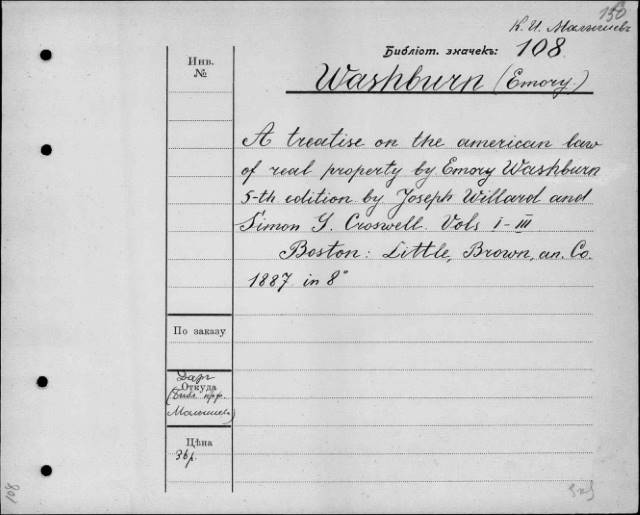 150
К. И. Малышевъ
Библіот. значекъ: 108
Washburn (Emory.)
Инв.
№
A treatise on the american law
of real property by Emory Washburn
5-th edition by Joseph Willard and
Simon G. Croswell. Vols I-III
Boston: Little, Brown, an. Co.
1887 in 8°
По заказу
Даръ
Откуда
(Библ. пр.
Малышева)
Цѣна
36р.
108